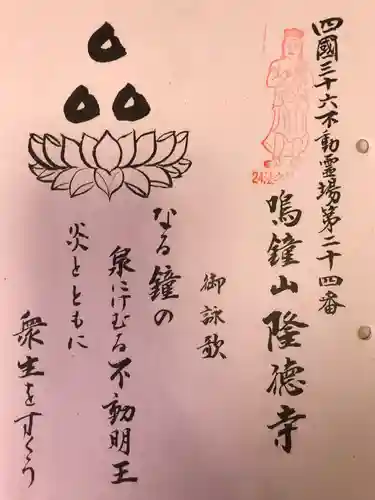 四國三十六不動霊場第二十四番
鳴鐘山隆徳寺
御詠歌
なる鐘の
泉にけむる不動明王
炎とともに
衆生をすくう